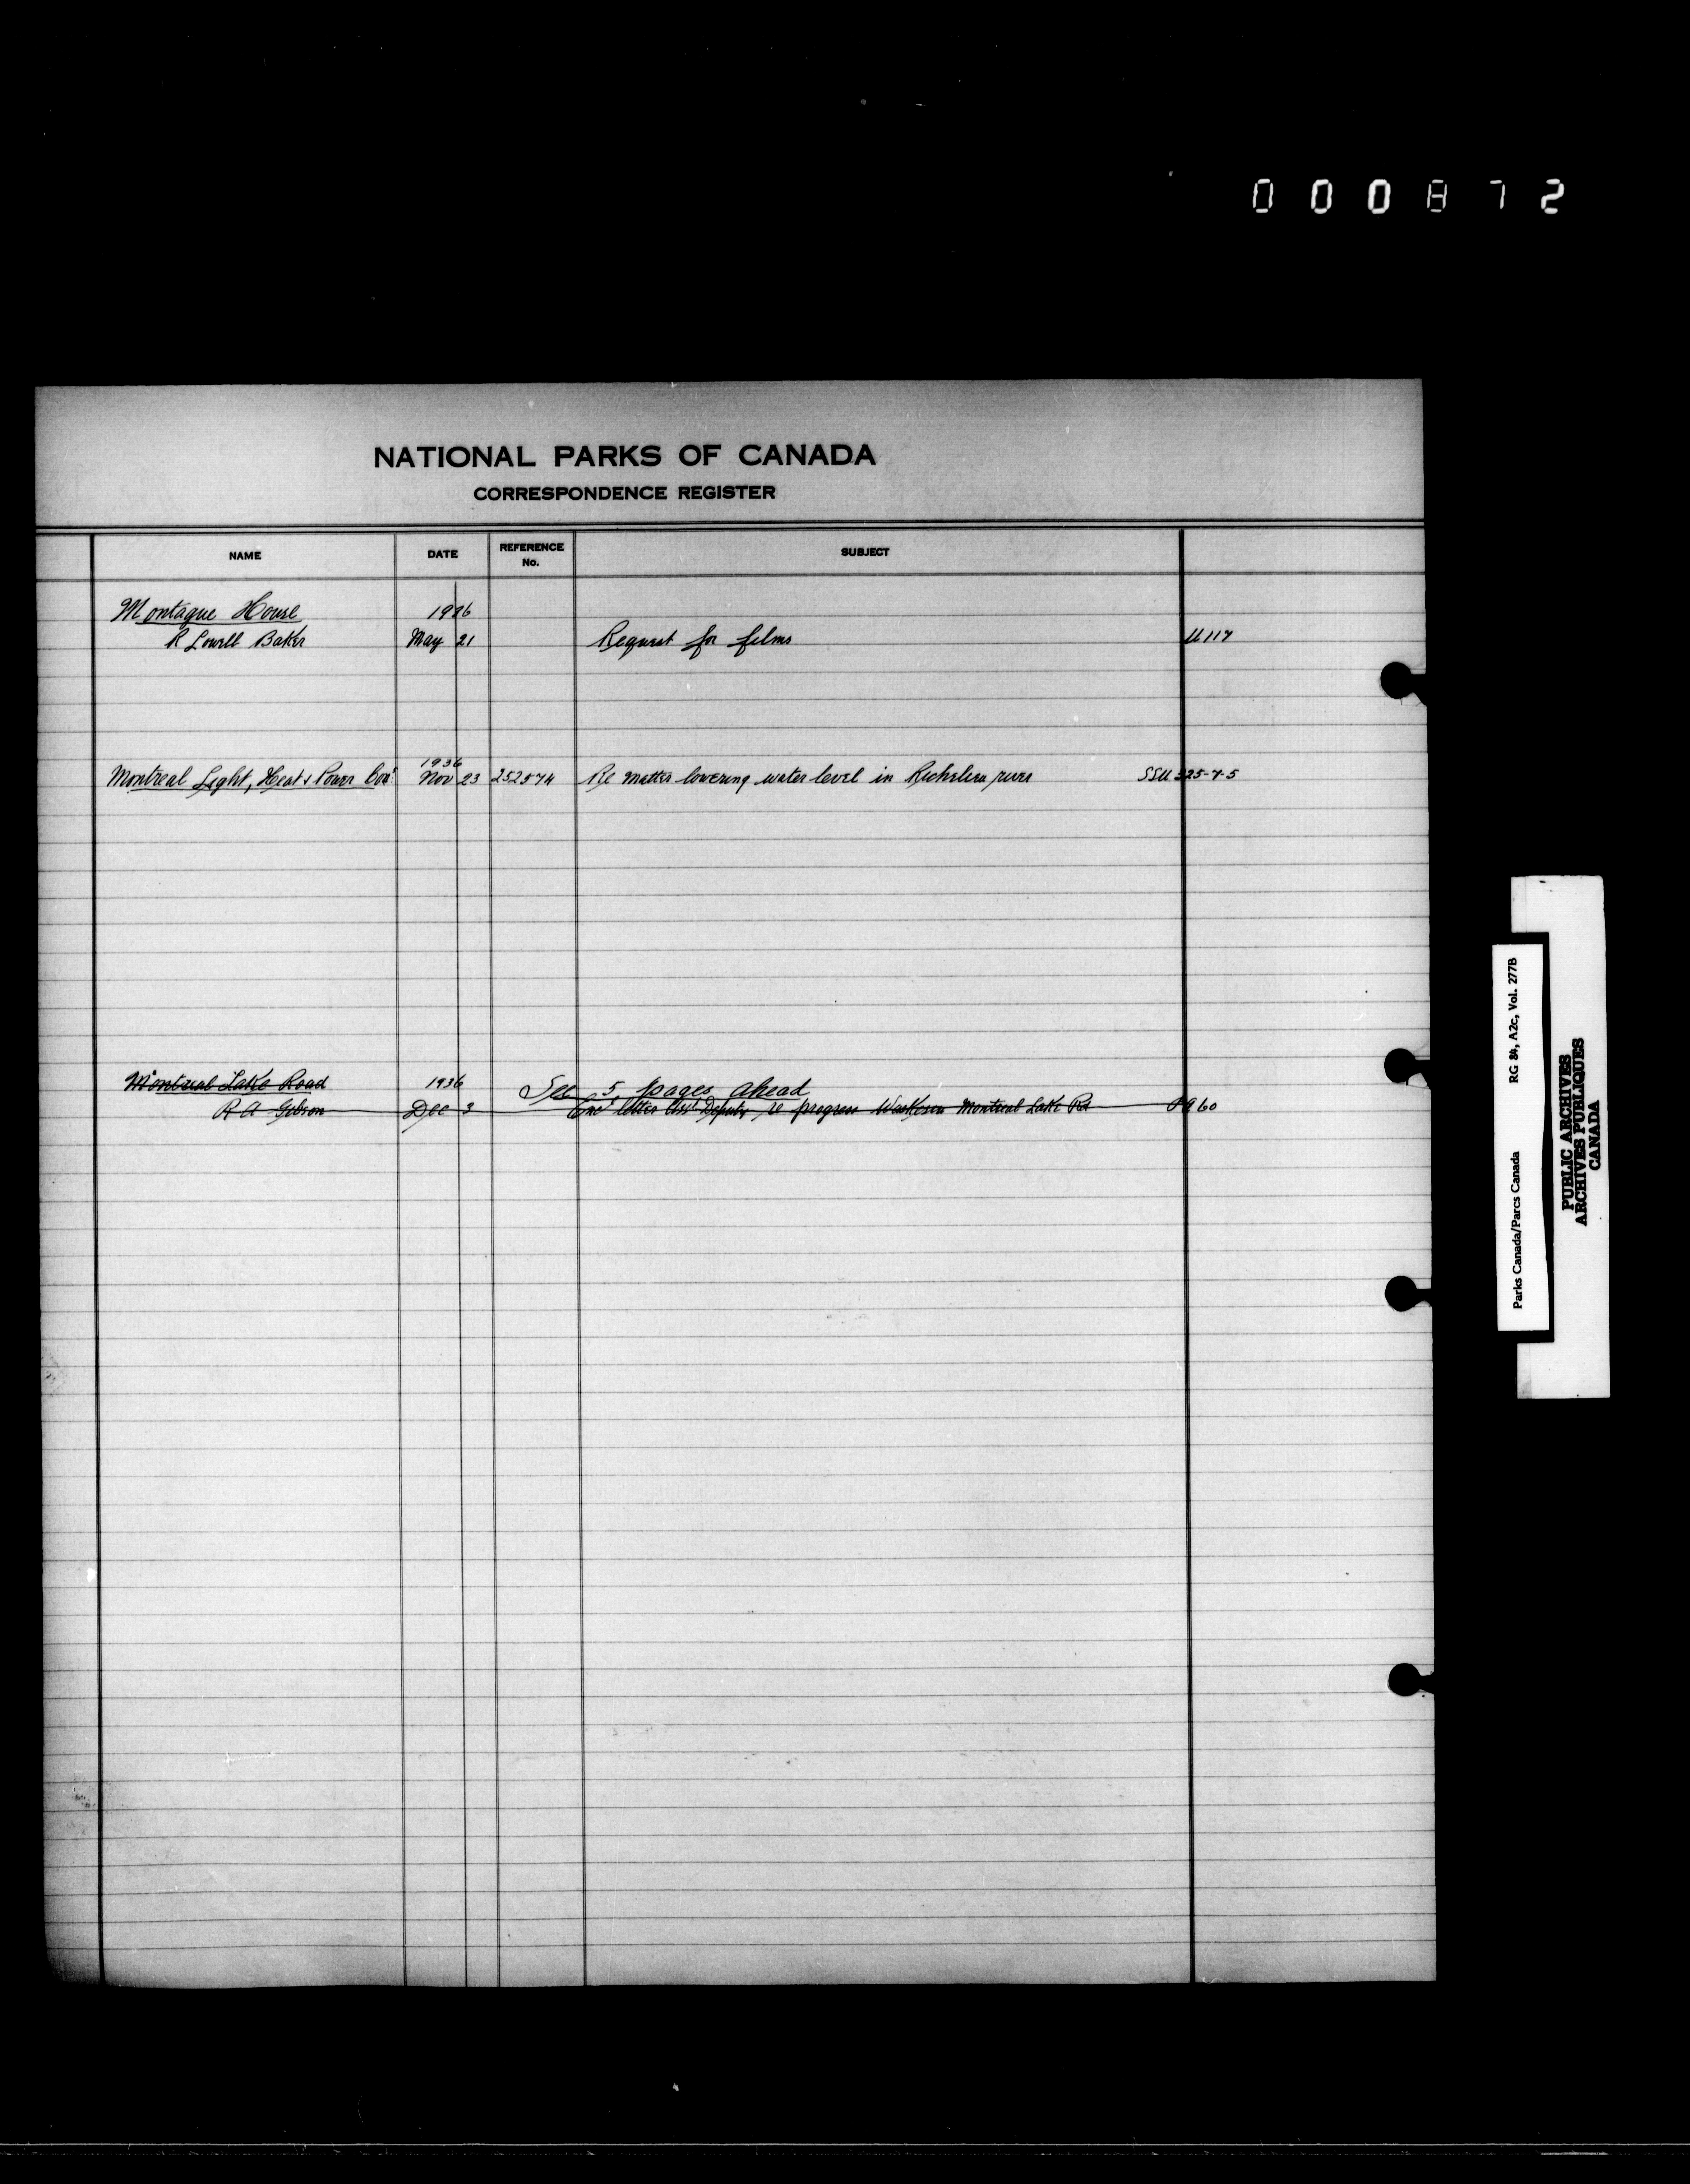 000872
NATIONAL PARKS OF CANADA
CORRESPONDENCE REGISTER
NAME DATE REFERENCE No. SUBJECT
Montague House 1936
R Lowell Baker May 21 Request for films U117
1936
Montreal Light, Heat & Power Cons Nov 23 252574 Re matter lowering water level in Richelieu river SSU 325-7-5
Montreal Lake Road 1936 See 5 pages ahead
R A Gibson Dec 3 letter Asst Deputy re progress Waskesiu Montreal Lake Rd P960
Parks Canada/Parcs Canada RG 84, A2c, Vol. 277B
PUBLIC ARCHIVES
ARCHIVES PUBLIQUES
CANADA